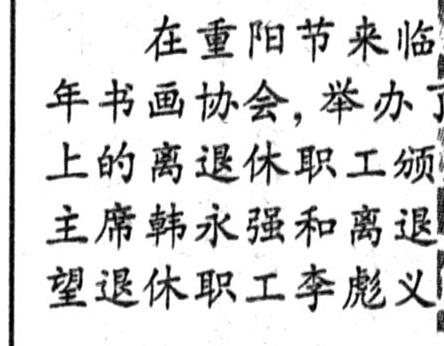 在重阳节来临
年书画协会,举办
上的离退休职工颁
主席韩永强和离退
望退休职工李彪义